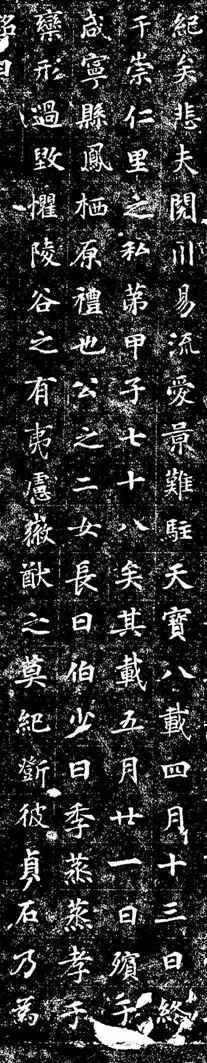 紀矣悲夫閱川易流愛景難駐天寶八載四月十三日終
于崇仁里之私第甲子七十八矣其載五月廿一日殯于
咸寧縣鳳栖原禮也公之二女長曰伯少曰季蒸蒸孝于
欒形過毀懼陵谷之有夷慮徽猷之莫紀斵彼貞石乃爲
銘曰